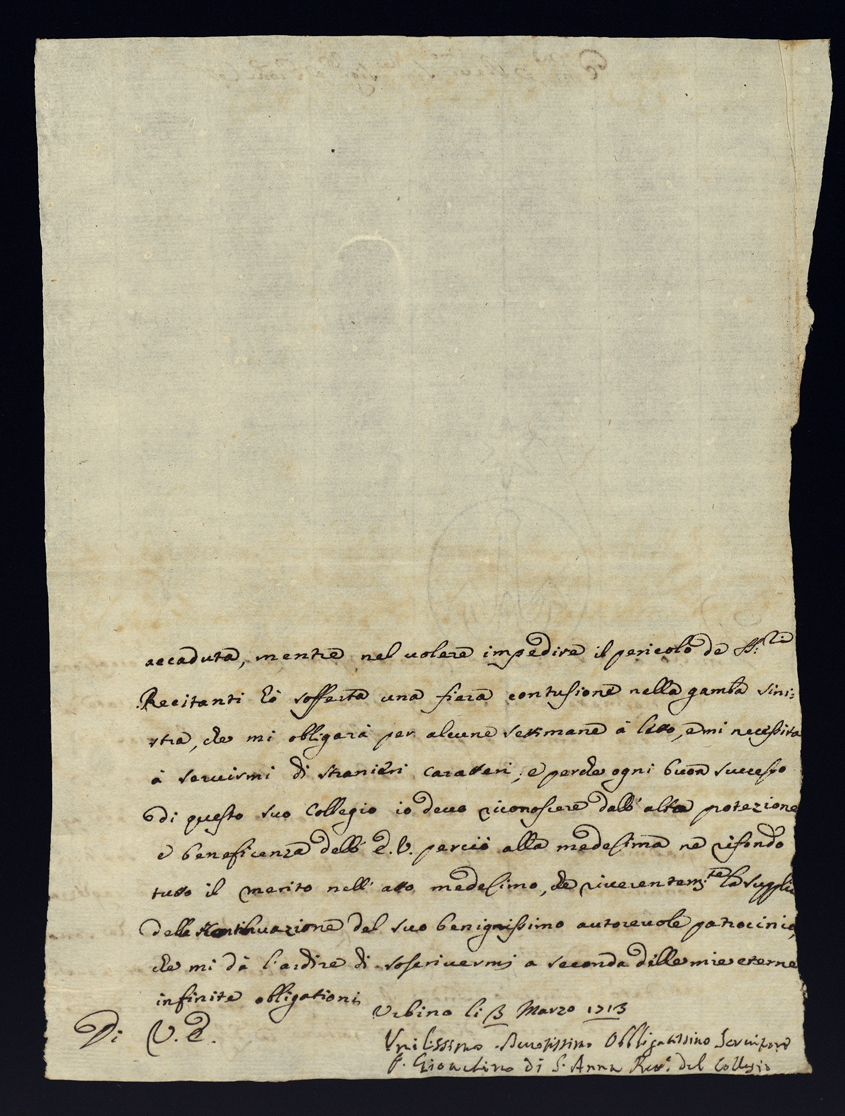 accaduta, mentre nel volere impedire il pericolo de SS.ri
Recitanti hò sofferta una fiera contusione nella gamba sini:
stra, che mi obligarà per alcune settimane à letto, e mi necessita
à servirmi di stranieri caratteri; e perche ogni buon successo
di questo suo Collegio io devo riconoscere dall' alta protezione
e beneficenza dell' E.V. perciò alla medesima ne rifondo
tutto il merito nell' atto medesimo, che riverentem.te la supplico
della continuazione del suo benignissimo autorevole patrocinio,
che mi dà l'ardire di soscrivermi a seconda delle mie eterne
infinite obligationi
Urbino li 3 Marzo 1713
Di V.E.
Umilissimo Devotissimo Obbligatissimo Servitore
P. Gioachino di S. Anna Ret. del Collegio